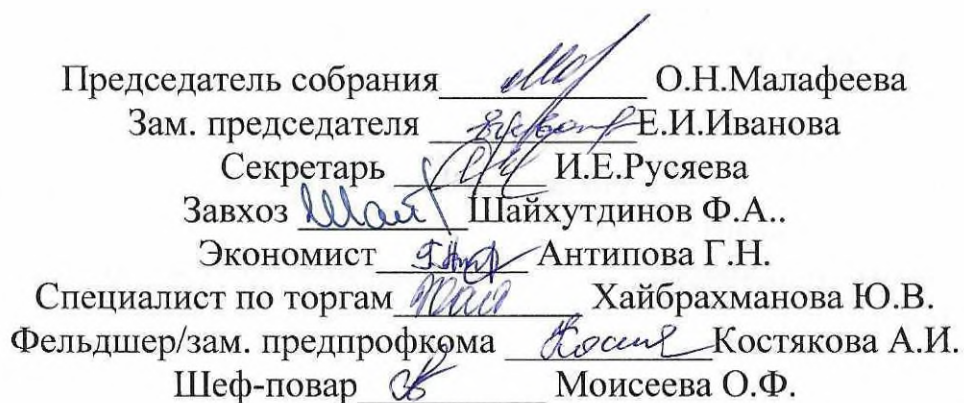 Председатель собрания О.Н.Малафеева
Зам. председателя Е.И.Иванова
Секретарь И.Е.Русяева
Завхоз Шайхутдинов Ф.А..
Экономист Антипова Г.Н.
Специалист по торгам Хайбрахманова Ю.В.
Фельдшер/зам. предпрофкома Костякова А.И.
Шеф-повар Моисеева О.Ф.